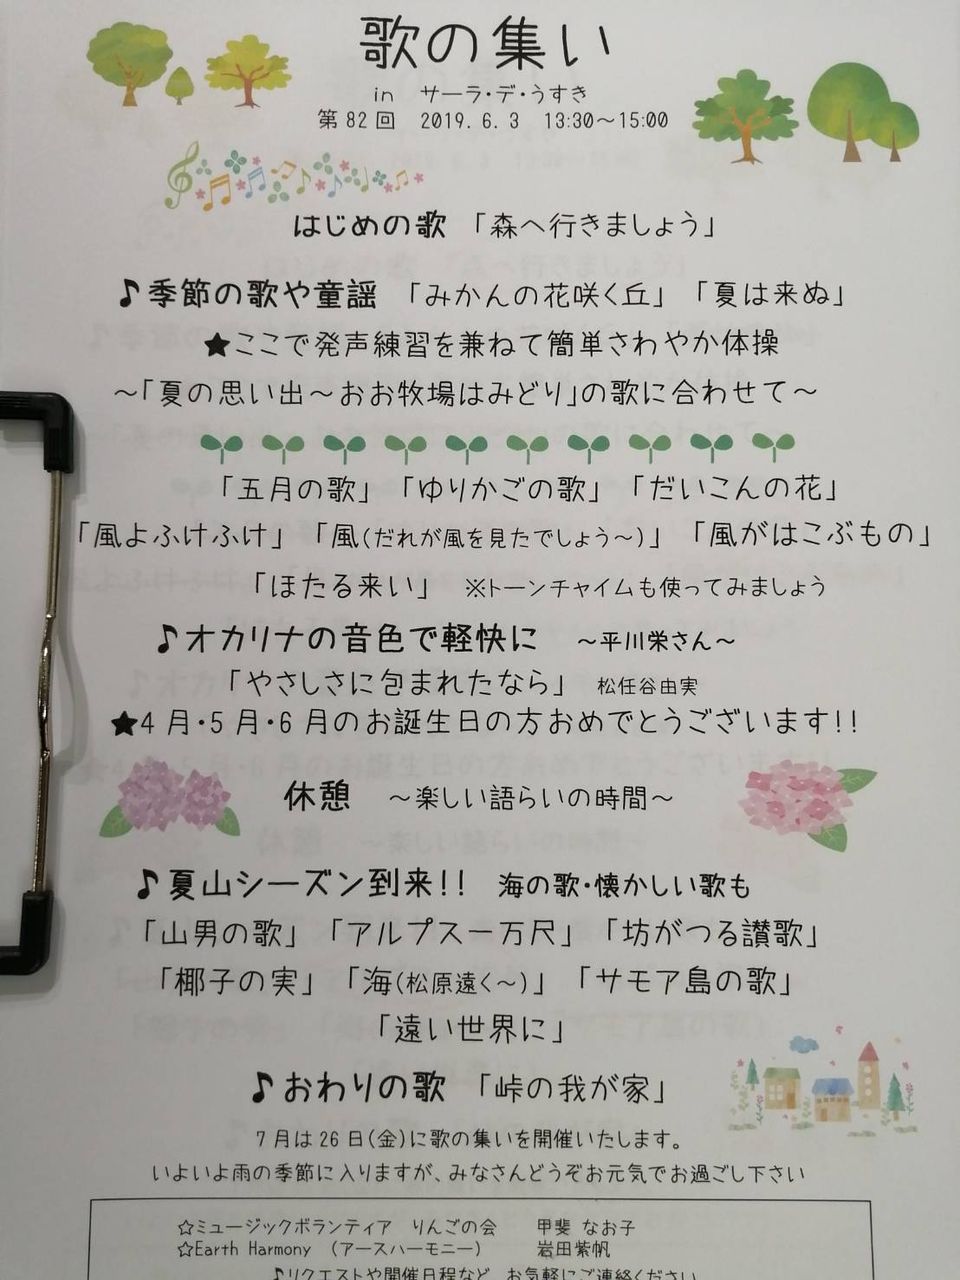 歌の集い
in サーラ・デ・うすき
第82回 2019.6.3 13:30～15:00
はじめの歌 「森へ行きましょう」
♪季節の歌や童謡 「みかんの花咲く丘」 「夏は来ぬ」
★ここで発声練習を兼ねて簡単さわやか体操
～「夏の思い出～おお牧場はみどり」の歌に合わせて～
「五月の歌」 「ゆりかごの歌」 「だいこんの花」
「風よふけふけ」 「風(だれが風を見たでしょう～)」 「風がはこぶもの」
「ほたる来い」 ※トーンチャイムも使ってみましょう
♪オカリナの音色で軽快に ～平川栄さん～
「やさしさに包まれたなら」 松任谷由実
★4月・5月・6月のお誕生日の方おめでとうございます!!
休憩 ～楽しい語らいの時間～
♪夏山シーズン到来!! 海の歌・懐かしい歌も
「山男の歌」 「アルプス一万尺」 「坊がつる讃歌」
「椰子の実」 「海(松原遠く～)」 「サモア島の歌」
「遠い世界に」
♪おわりの歌 「峠の我が家」
7月は26日(金)に歌の集いを開催いたします。
いよいよ雨の季節に入りますが、みなさんどうぞお元気でお過ごし下さい
☆ミュージックボランティア りんごの会 甲斐 なお子
☆Earth Harmony (アースハーモニー) 岩田紫帆
♪リクエストや開催日程など、お気軽にご連絡ください